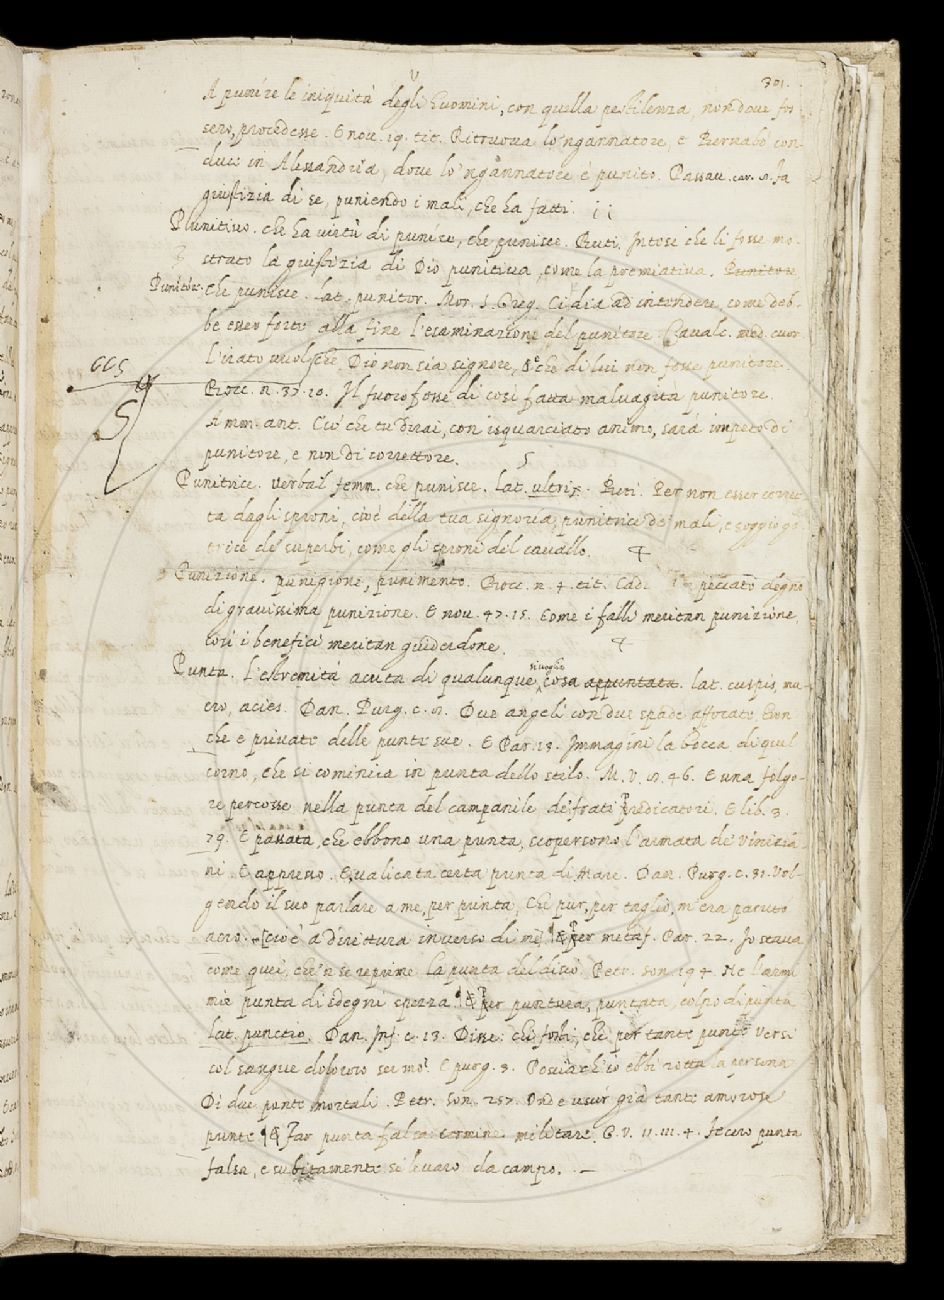 301.
A punire le iniquità degli Uomini, con quella pestilenza, non dove fos
sero, procedesse. E nov. 19. tit. Ritruova lo'ngannatore, e Bernabò con-
duce in Alessandria, dove lo'ngannatore è punito. Passav. car. 2. fa
giustizia di se, punendo i mali, che ha fatti.
Punitivo. che ha virtù di punire, che punisce. Buti. Intose che li fosse mo-
strato la giustizia di Dio punitiva, come la premiativa. Punitore
Punitore. Che punisce. Lat. punitor. Mor. S. Greg. Ci dia ad intendere, come deb-
be esser forte alla fine l'esaminazione del punitore. Cavalc. med. cuor
L'irato vuol, che Dio non sia signore, che di lui non fosse punitore.
665
Bocc. n. 37. 10. Il fuoco fosse di così fatta malvagità punitore.
S
A mon. ant. Ciò che tu dirai, con isquarciato animo, sarà impeto di
punitore, e non di correttore.
Punitrice. Verbal femm. che punisce. Lat. ultrix. Buti. Per non esser corret-
ta dagli sproni, cioè della tua signoria, punitrice de' mali, e soggioga-
trice de' superbi, come gli sproni del cavallo.
Punizione. punigione, punimento. Bocc. n. 4. tit. Cad. peccato degno
di gravissima punizione. E nov. 47. 15. Come i falli meritan punizione
così i benefici meritan guiderdone.
Punta. L'estremità acuta di qualunque si voglia cosa appuntata. lat. cuspis, mu
cro, acies. Dan. Purg. c. 8. Due angeli con due spade affocate, tron
che e private delle punte sue. E Par. 13. Immagini la bocca di quel
corno, che si comincia in punta dello stilo. M. V. 8. 46. E una folgo-
re percosse nella punta del campanile de' frati Predicatori. E lib. 3.
79. E passata, che ebbono una punta, scopersono l'armata de' Vinizia-
ni. E appresso. E valicata certa punta di Mare. Dan. Purg. c. 31. Vol-
gendo il suo parlare a me, per punta, Che pur, per taglio, m'era paruto
acro. cioè a dirittura inverso di me Per metaf. Par. 22. Io stava
come quei, che'n se repreme la punta del disio. Petr. son. 194. Ne l'armi
mie punta di sdegni spezza Per puntura, puntata, colpo di punta
Lat. punctio. Dan. Inf. c. 13. Disse: chi fosti, che per tante punte Versi
col sangue doloroso sermo? E purg. 3. Poscia ch'io ebbi rotta la persona
Di due punte mortali. Petr. son. 257. Onde uscir già tante amorose
punte Far punta falsa. termine militare, G. V. 11. 111. 4. Fecero punta
falsa, e subitamente si levaro da campo.